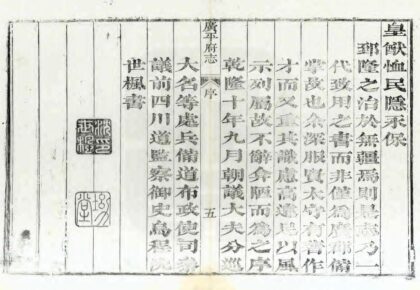 皇猷恤民隱永保
郅隆之治於無疆焉則是書乃一
代致用之書而非僅為廣郡備
掌故也余深服賢太守有善作
才而又重其識慮高遠足以風
示列屬故不辭弇陋而為之序
乾隆十年九月朝議大夫分巡
廣平府志
序
五
大名等處兵備道布政使司參
議前四川道監察御史烏程沈
世楓書